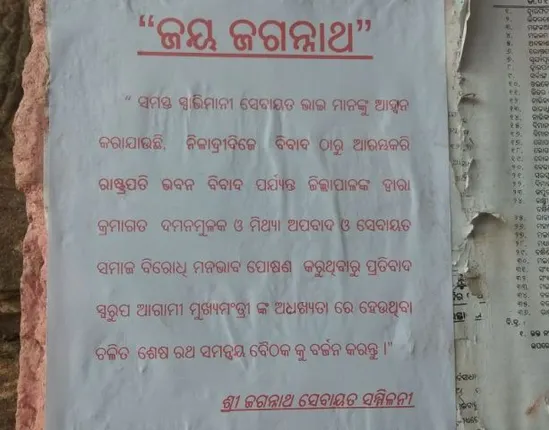 “ଜୟ ଜଗନ୍ନାଥ”
“ ସମସ୍ତ ସ୍ଵାଭିମାନୀ ସେବାୟତ ଭାଇ ମାନଙ୍କୁ ଆହ୍ଵାନ
କରାଯାଉଛି, ନିଳାଦ୍ରୀବିଜେ ବିବାଦ ଠାରୁ ଆରମ୍ଭକରି
ରାଷ୍ଟ୍ରପତି ଭବନ ବିବାଦ ପର୍ଯ୍ୟନ୍ତ ଜିଲ୍ଲାପାଳଙ୍କ ଦ୍ଵାରା
କ୍ରମାଗତ ଦମନମୁଳକ ଓ ମିଥ୍ୟା ଅପବାଦ ଓ ସେବାୟତ
ସମାଜ ବିରୋଧି ମନଭାବ ପୋଷଣ କରୁଥିବାରୁ ପ୍ରତିବାଦ
ସ୍ଵରୁପ ଆଗାମୀ ମୁଖ୍ୟମଂତ୍ରୀ ଙ୍କ ଅଧ୍ୟଖ୍ୟତା ରେ ହେଉଥିବା
ଚଳିତ ଶେଷ ରଥ ସମନ୍ଵୟ ବୈଠକ କୁ ବର୍ଜନ କରନ୍ତୁ ।”
ଶ୍ରୀ ଜଗନ୍ନାଥ ସେବାୟତ ସମ୍ମିଳନୀ